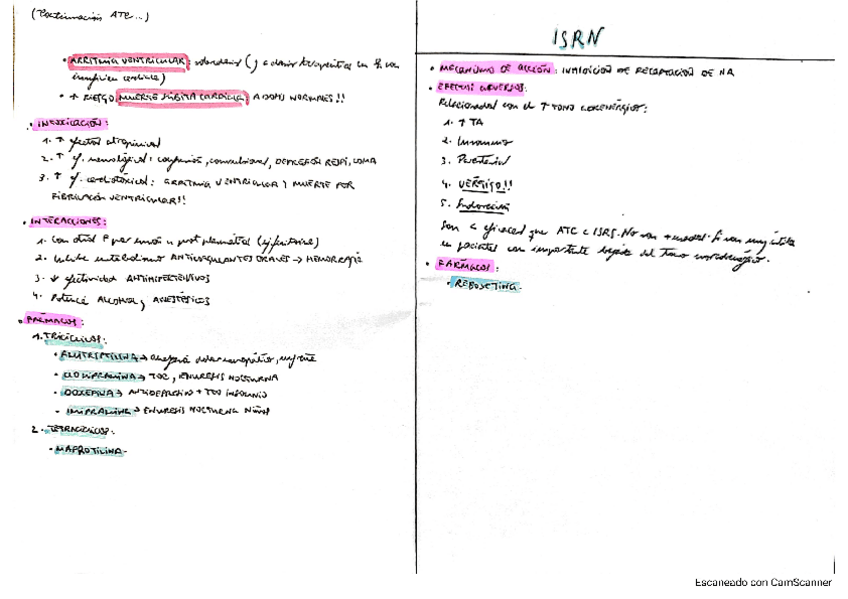 (Continuación ATC...)
• ARRITMIA VENTRICULAR: sobredosis (y a dosis terapéuticas en
insuficiencia cardíaca)
• ↑ RIESGO MUERTE SÚBITA CARDÍACA A DOSIS NORMALES!!
• INTOXICACIÓN:
1. ↑ efectos atropínicos
2. ↑ ef. neurológicos: confusión, convulsiones, DEPRESIÓN RESPI, COMA
3. ↑ ef. cardiotóxicos: ARRITMIA VENTRICULAR Y MUERTE POR
FIBRILACIÓN VENTRICULAR!!
• INTERACCIONES:
1. Con otros F por unión a prot plasmáticas
2. Inhibe metabolismo ANTICOAGULANTES ORALES → HEMORRAGIA
3. ↓ efectividad ANTIHIPERTENSIVOS
4. Potencia ALCOHOL y ANESTÉSICOS
• FÁRMACOS:
1. TRICÍCLICOS:
• AMITRIPTILINA → dolor neuropático, migraña
• CLOMIPRAMINA → TOC, ENURESIS NOCTURNA
• DOXEPINA → ANTIDEPRESIVO + TTO INSOMNIO
• IMIPRAMINA → ENURESIS NOCTURNA NIÑOS
2. TETRACÍCLICOS:
• MAPROTILINA.
ISRN
• MECANISMO DE ACCIÓN: INHIBICIÓN DE RECAPTACIÓN DE NA
• EFECTOS ADVERSOS:
Relacionados con el ↑ TONO NORENÉRGICO:
1. ↑ TA
2. Insomnio
3.
4. VÉRTIGO!!
5. Sudoración
Son eficaces que ATC e ISRS. No son Si son muy útiles
en pacientes con importante bajada del Tono noradrenérgico.
• FÁRMACOS:
• REBOXETINA.
Escaneado con CamScanner